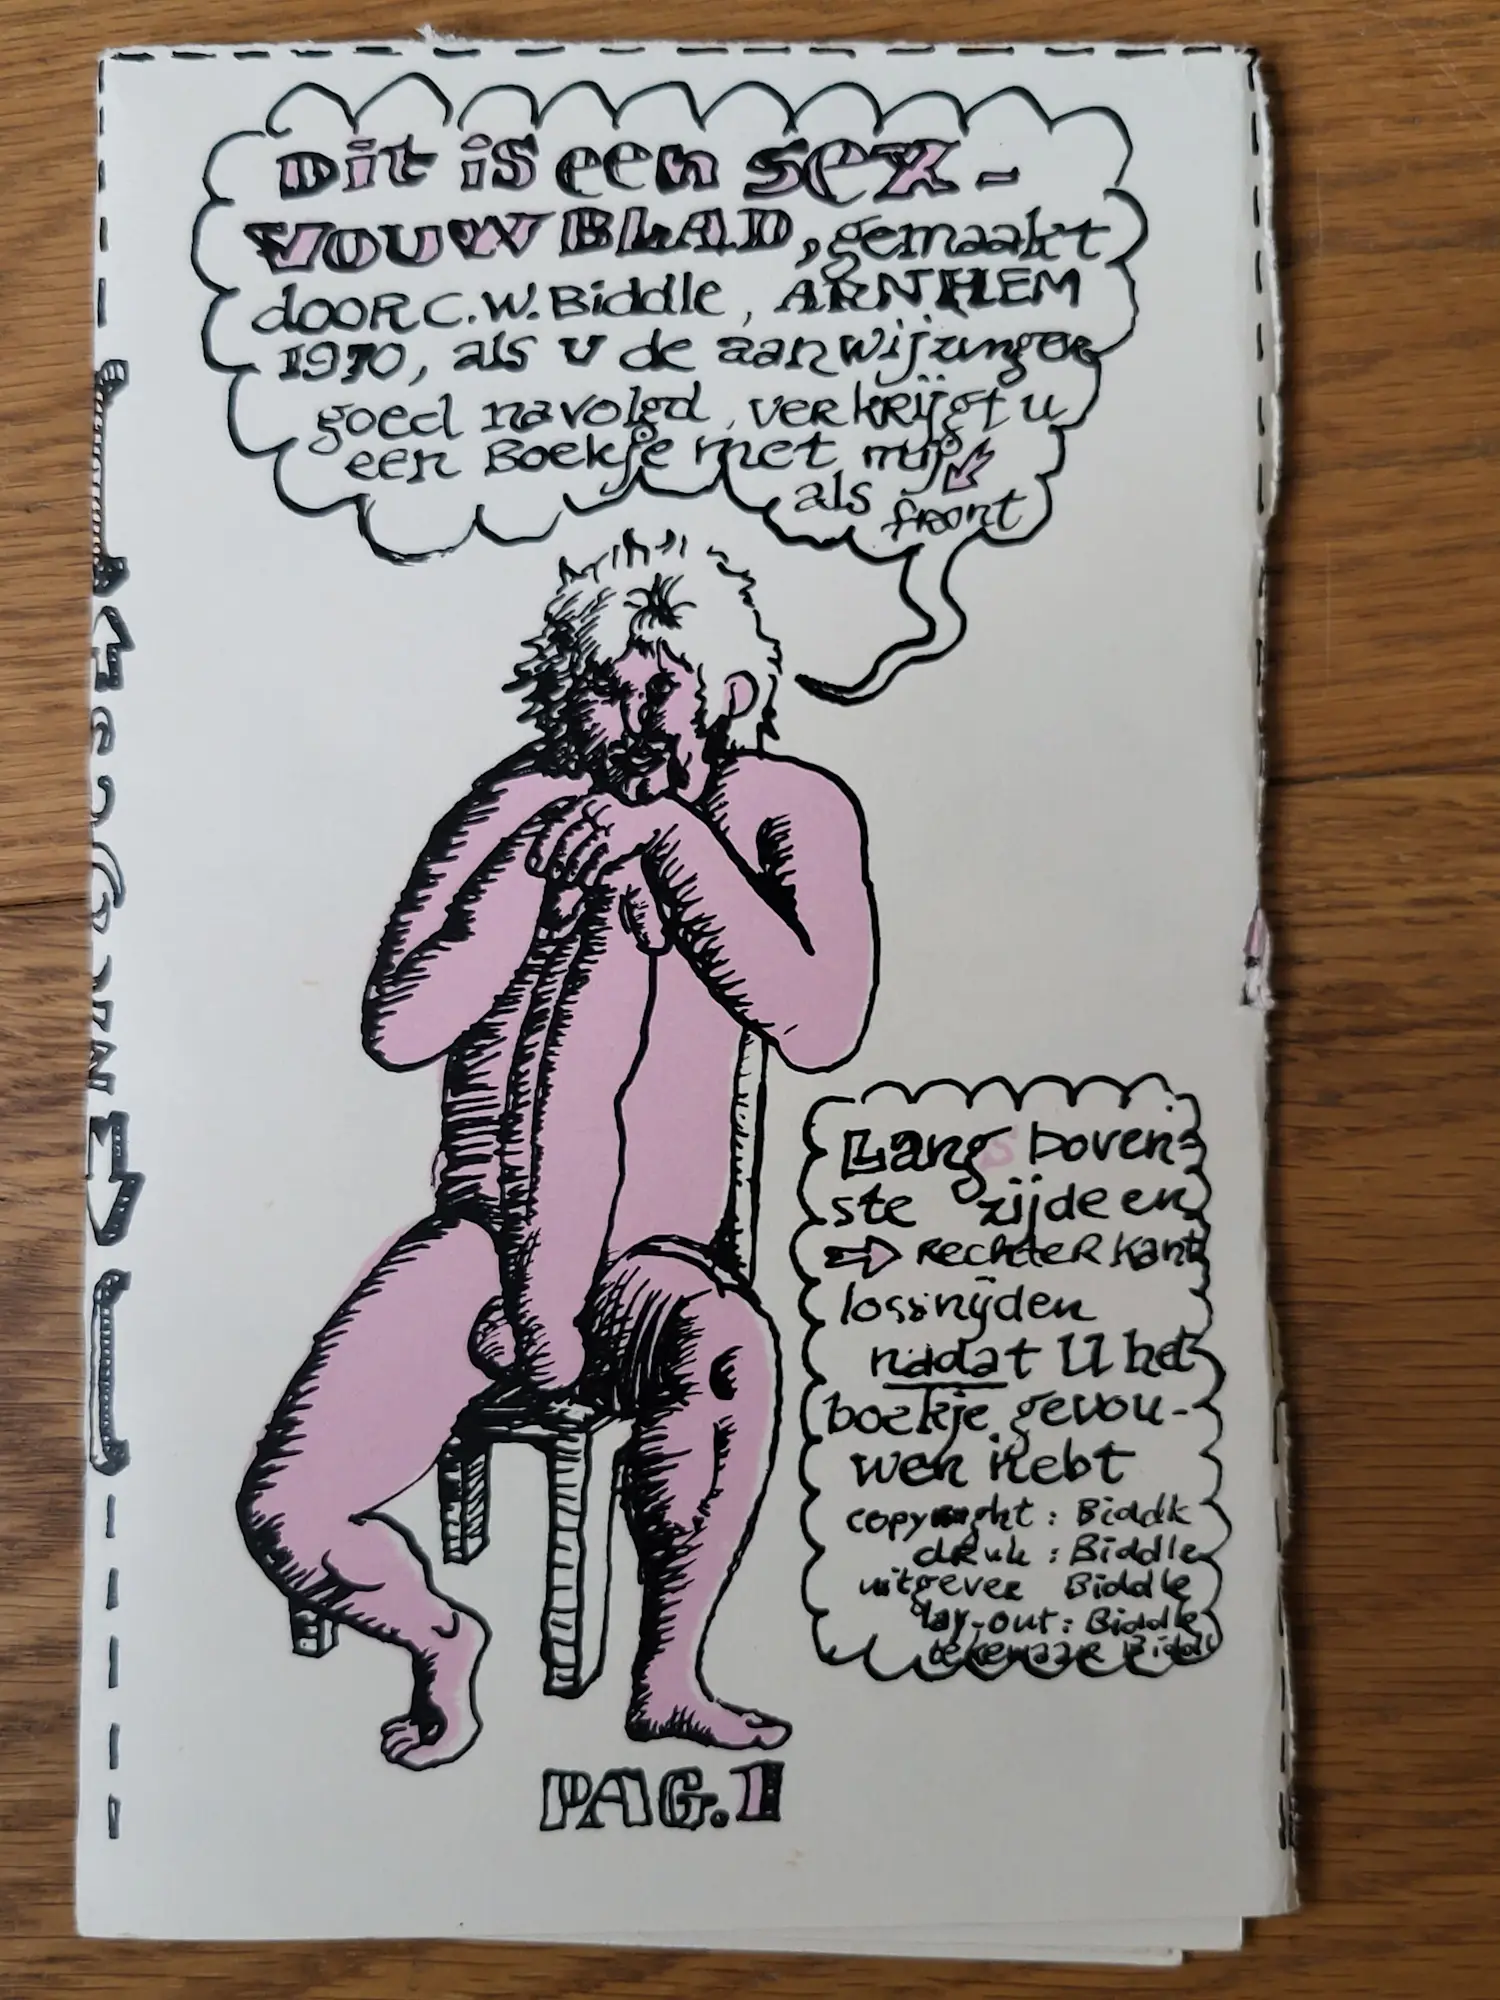 Dit is een sex-
VOUWBLAD, gemaakt
door C.W. Biddle, ARNHEM
1970, als U de aanwijzingen
goed navolgd, verkrijgt u
een Boekje met mij
als front
Langs boven-
ste zijde en
rechter kant
lossnijden
nadat U het
boekje gevou-
wen hebt
copyright: Biddle
druk: Biddle
uitgever Biddle
lay-out: Biddle
tekenaar Biddle
PAG. 1